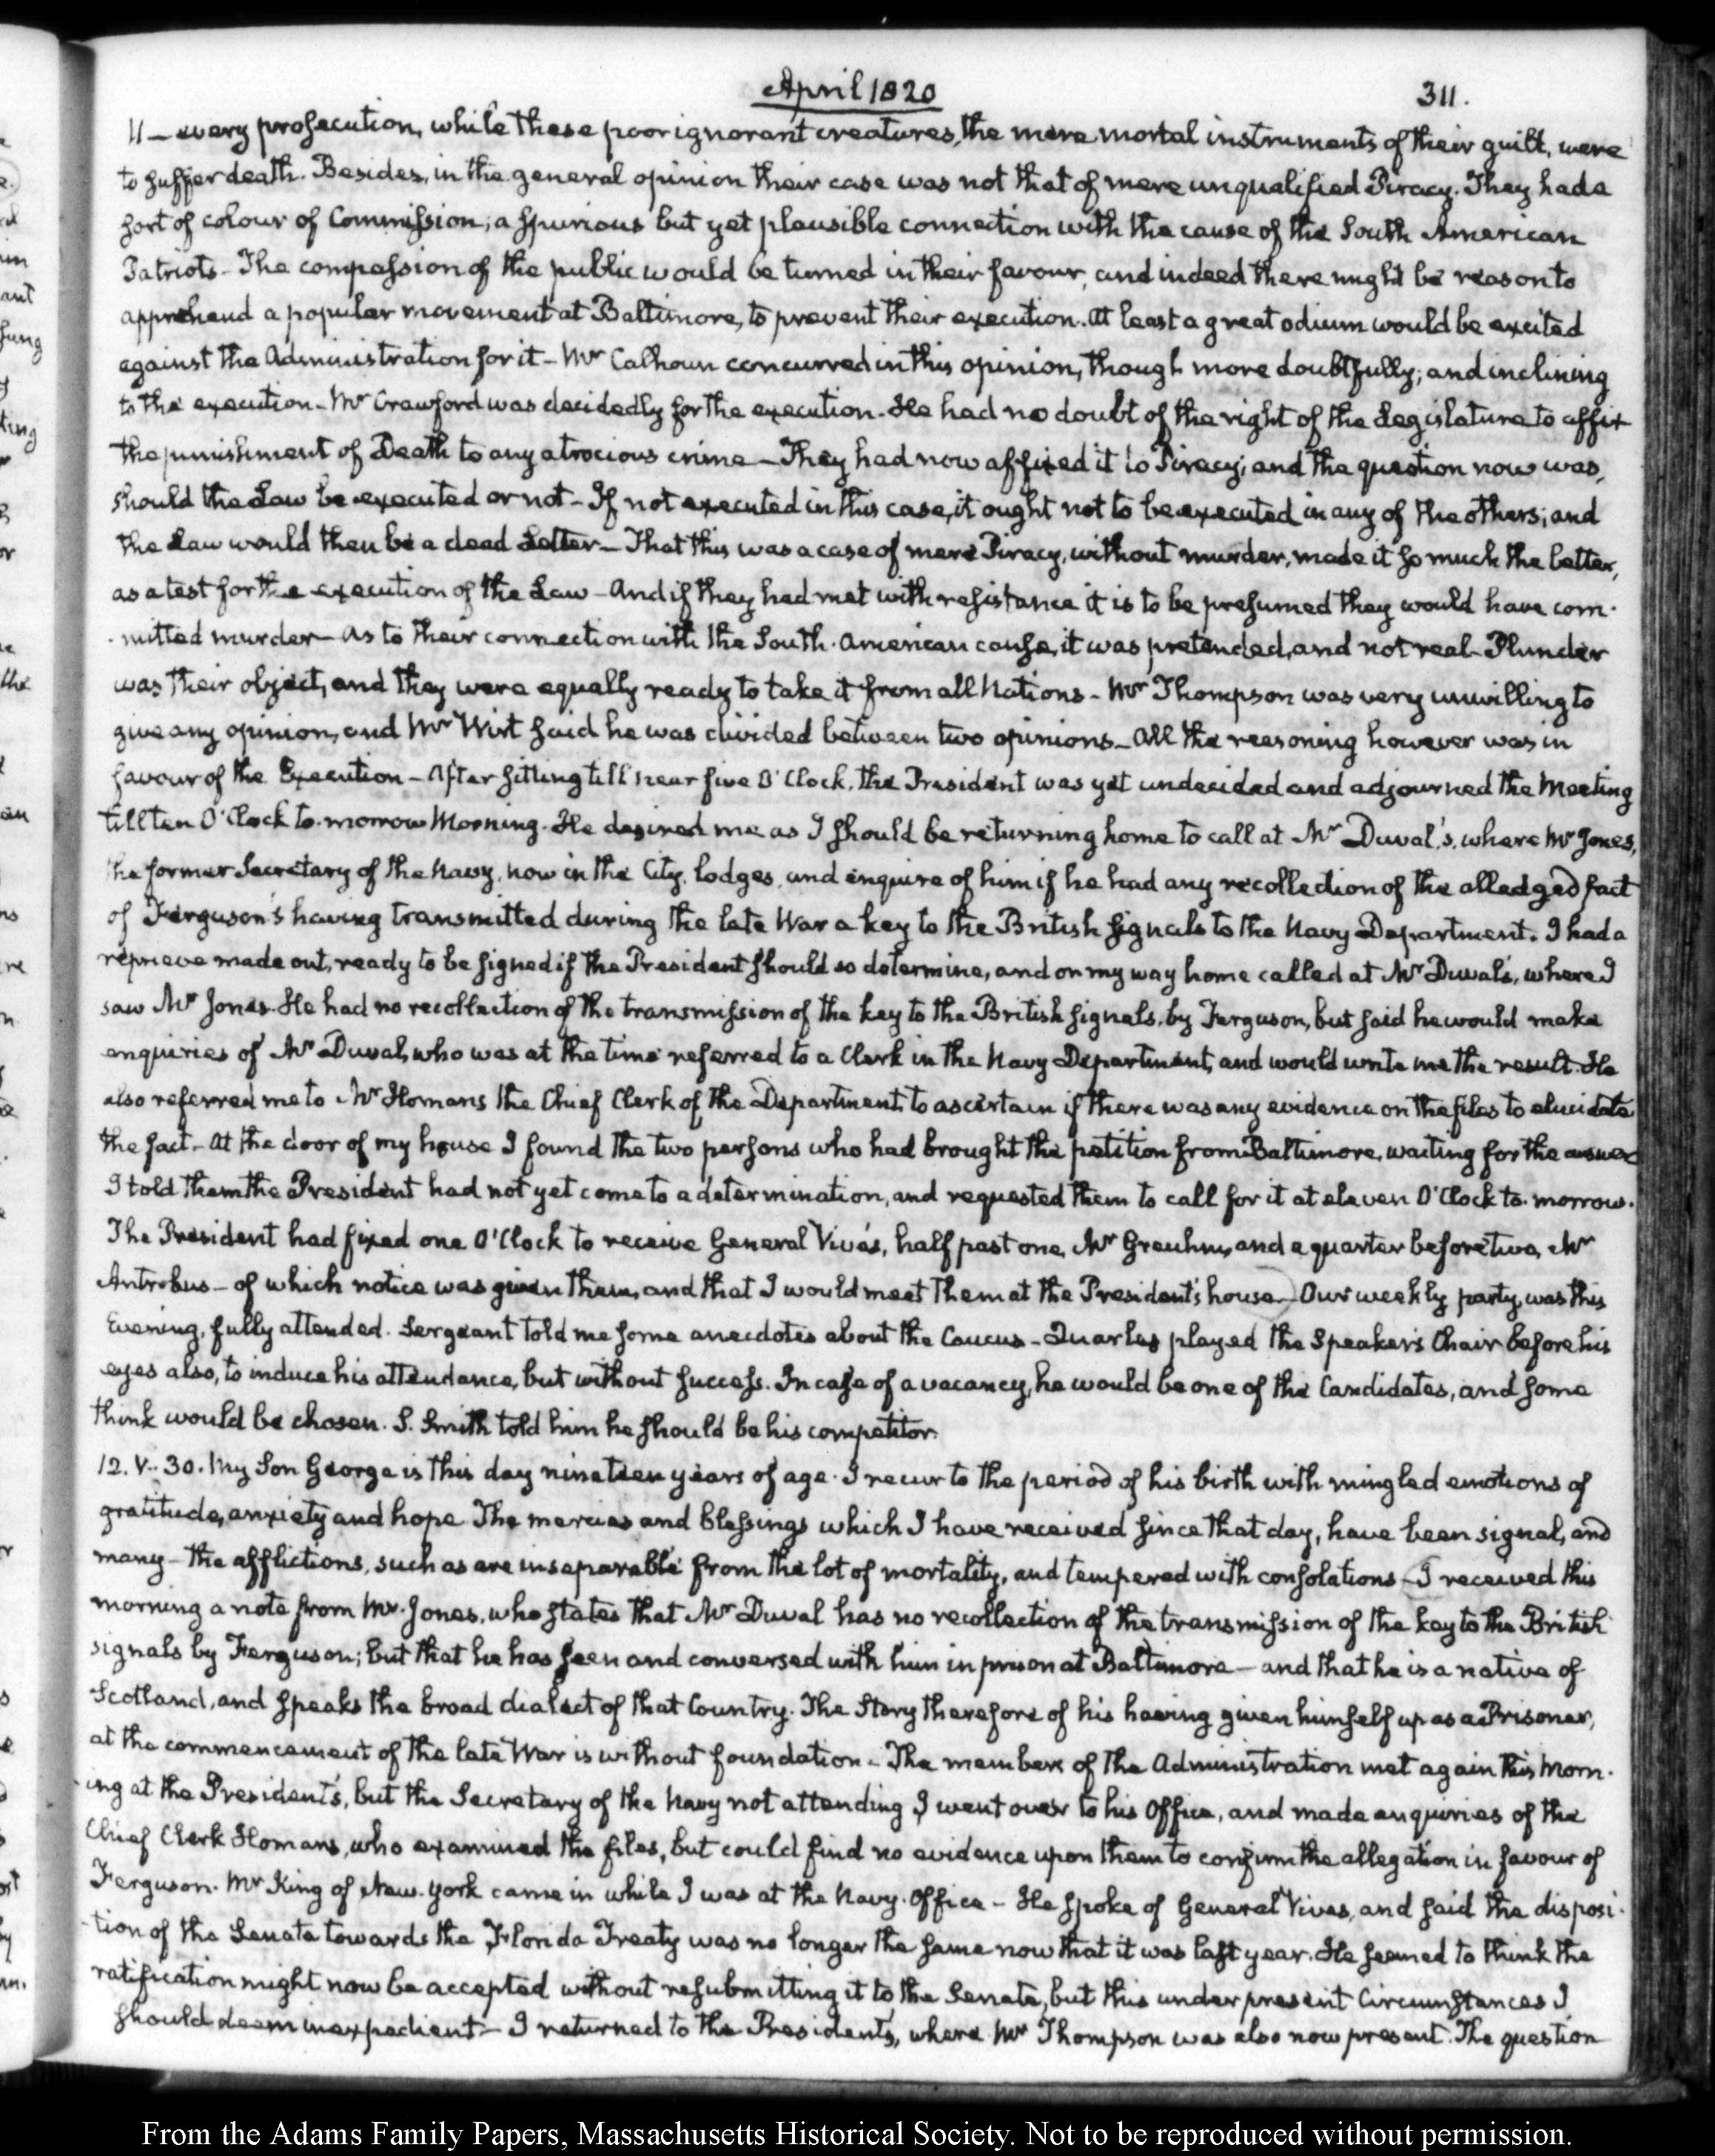 April 1820
311.
11 — every prosecution, while these poor ignorant creatures, the mere mortal instruments of their guilt, were
to suffer death. Besides, in the general opinion their case was not that of mere unqualified Piracy. They had a
sort of colour of Commission; a spurious but yet plausible connection with the cause of the South American
Patriots - The compassion of the public would be turned in their favour, and indeed there might be reason to
apprehend a popular movement at Baltimore, to prevent their execution. At least a great odium would be excited
against the Administration for it - Mr Calhoun concurred in this opinion, though more doubtfully; and inclining
to the execution - Mr Crawford was decidedly for the execution. He had no doubt of the right of the Legislature to affix
the punishment of Death to any atrocious crime - They had now affixed it to Piracy; and the question now was,
should the Law be executed or not - If not executed in this case, it ought not to be executed in any of the others; and
the Law would then be a dead Letter - That this was a case of mere Piracy, without murder, made it so much the better,
as a test for the execution of the Law - And if they had met with resistance it is to be presumed they would have com-
-mitted murder - As to their connection with the South-American cause, it was pretended, and not real - Plunder
was their object, and they were equally ready to take it from all Nations - Mr Thompson was very unwilling to
give any opinion, and Mr Wirt said he was divided between two opinions - All the reasoning however was in
favour of the Execution - After sitting till near five O'Clock, the President was yet undecided and adjourned the Meeting
till ten O'Clock to-morrow Morning. He desired me as I should be returning home to call at Mr Duval's, where Mr Jones,
the former Secretary of the Navy, now in the City, lodges, and enquire of him if he had any recollection of the alledged fact
of Ferguson's having transmitted during the late War a key to the British signals to the Navy Department. I had a
reprieve made out, ready to be signed if the President should so determine, and on my way home called at Mr Duval's, where I
saw Mr Jones. He had no recollection of the transmission of the key to the British signals, by Ferguson, but said he would make
enquiries of Mr Duval, who was at the time referred to a Clerk in the Navy Department, and would write me the result. He
also referred me to Mr Homans the Chief Clerk of the Department, to ascertain if there was any evidence on the files to elucidate
the fact - At the door of my house I found the two persons who had brought the petition from Baltimore, waiting for the answer
I told them the President had not yet come to a determination, and requested them to call for it at eleven O'Clock to-morrow.
The President had fixed one O'Clock to receive General Vivés, half past one, Mr Greuhm, and a quarter before two, Mr
Antrobus - of which notice was given them, and that I would meet them at the President's house - Our weekly party, was this
Evening, fully attended. Sergeant told me some anecdotes about the Caucus - Quarles played the Speaker's Chair before his
eyes also, to induce his attendance, but without success. In case of a vacancy, he would be one of the Candidates, and some
think would be chosen. S. Smith told him he should be his competitor.
12. V. 30. My Son George is this day nineteen years of age. I recur to the period of his birth with mingled emotions of
gratitude, anxiety and hope. The mercies and blessings which I have received since that day, have been signal, and
many - the afflictions, such as are inseparable from the lot of mortality, and tempered with consolations - I received this
morning a note from Mr. Jones, who states that Mr Duval has no recollection of the transmission of the key to the British
signals by Ferguson; but that he has seen and conversed with him in prison at Baltimore - and that he is a native of
Scotland, and speaks the broad dialect of that Country. The Story therefore of his having given himself up as a Prisoner,
at the commencement of the late War is without foundation - The members of the Administration met again this Morn-
-ing at the President's, but the Secretary of the Navy not attending I went over to his Office, and made enquiries of the
Chief Clerk Homans, who examined the files, but could find no evidence upon them to confirm the allegation in favour of
Ferguson. Mr King of New-York came in while I was at the Navy-Office - He spoke of General Vives, and said the disposi-
-tion of the Senate towards the Florida Treaty was no longer the same now that it was last year. He seemed to think the
ratification might now be accepted without resubmitting it to the Senate, but this under present Circumstances I
should deem inexpedient - I returned to the President's, where Mr Thompson was also now present. The question
From the Adams Family Papers, Massachusetts Historical Society. Not to be reproduced without permission.